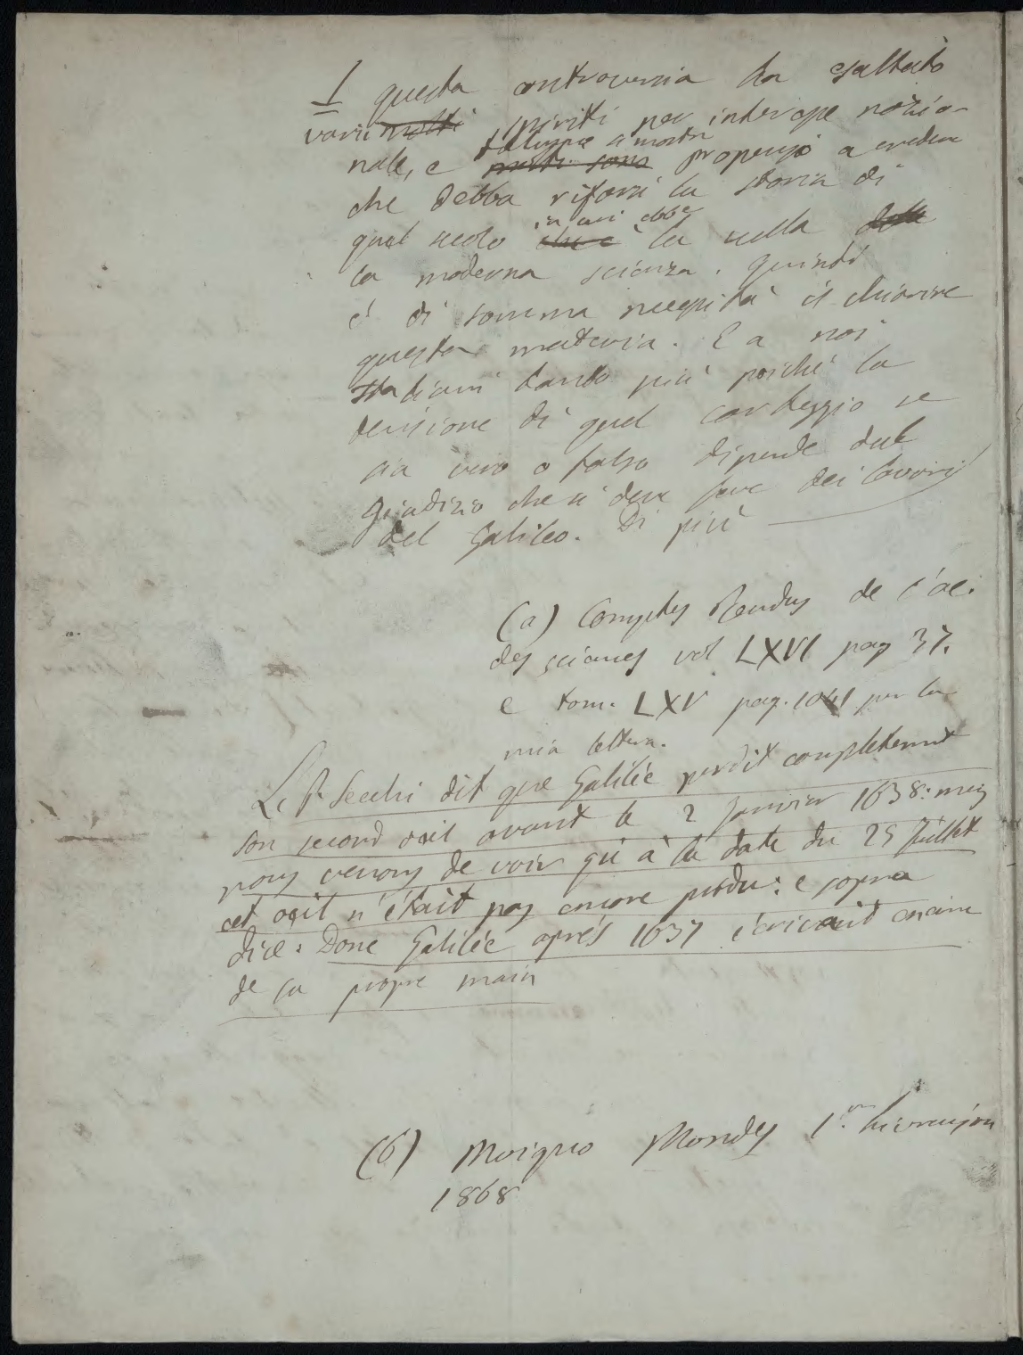 I questa controversia ha esaltato
varii molti spiriti per interesse nazio-
nale, e taluno si mostrò propenso a credere
che debba rifarsi la storia di
quel secolo in cui ebbe che è la culla della
la moderna scienza. Quindi
è di somma necessità il chiarire
questa materia. E a noi
Italiani tanto più poichè la
decisione di quel carteggio se
sia vero o falso dipende dal
giudizio che si deve fare dei lavori
del Galileo. Di più
(a) Comptes Rendus de l'ac.
des sciences vol LXVI pag 37.
e tom. LXV pag. 1041 per la
mia lettera.
Le P. Secchi dit que Galilée perdit complètement
son second oeil avant le 2 Janvier 1638: mais
nous venons de voir qu'à la date du 25 Juillet
cet oeil n'était pas encore perdu: e sopra
dice: Donc Galilée après 1637 écrivait encore
de sa propre main
(b) Moigno Mondes 1.re livraison
1868